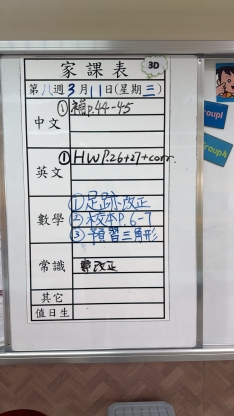 家課表 3D
第八週3月11日(星期三)
中文 ①補p.44-45
英文 ①HW P.26+27+corr.
數學 ①足跡改正
②校本P.6-7
③預習三角形
常識 改正
其它
值日生
Group1
Group4